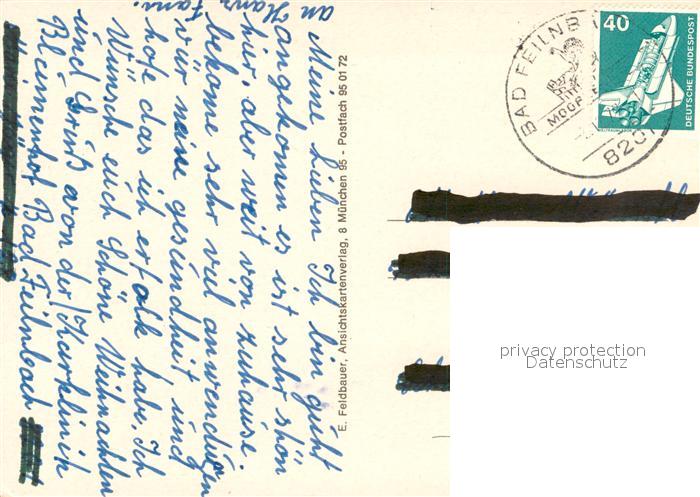 Meine lieben Ich bin guht
angekomen es ist sehr schön
hier aber weit von zuhause.
bekome sehr viel anwendungen
vür meine gesundheit und
hofe das ich erfolk habe. Ich
Wünsche euch Schöne Weihnachten
und Gruß von der/Kurklinik
Blumenhof Bad Feilnbach
an Hans
Fam.
E. Feldbauer, Ansichtskartenverlag, 8 München 95 - Postfach 95 01 72
BAD FEILNB
MOOR
8201
40
DEUTSCHE BUNDESPOST
privacy protection
Datenschutz